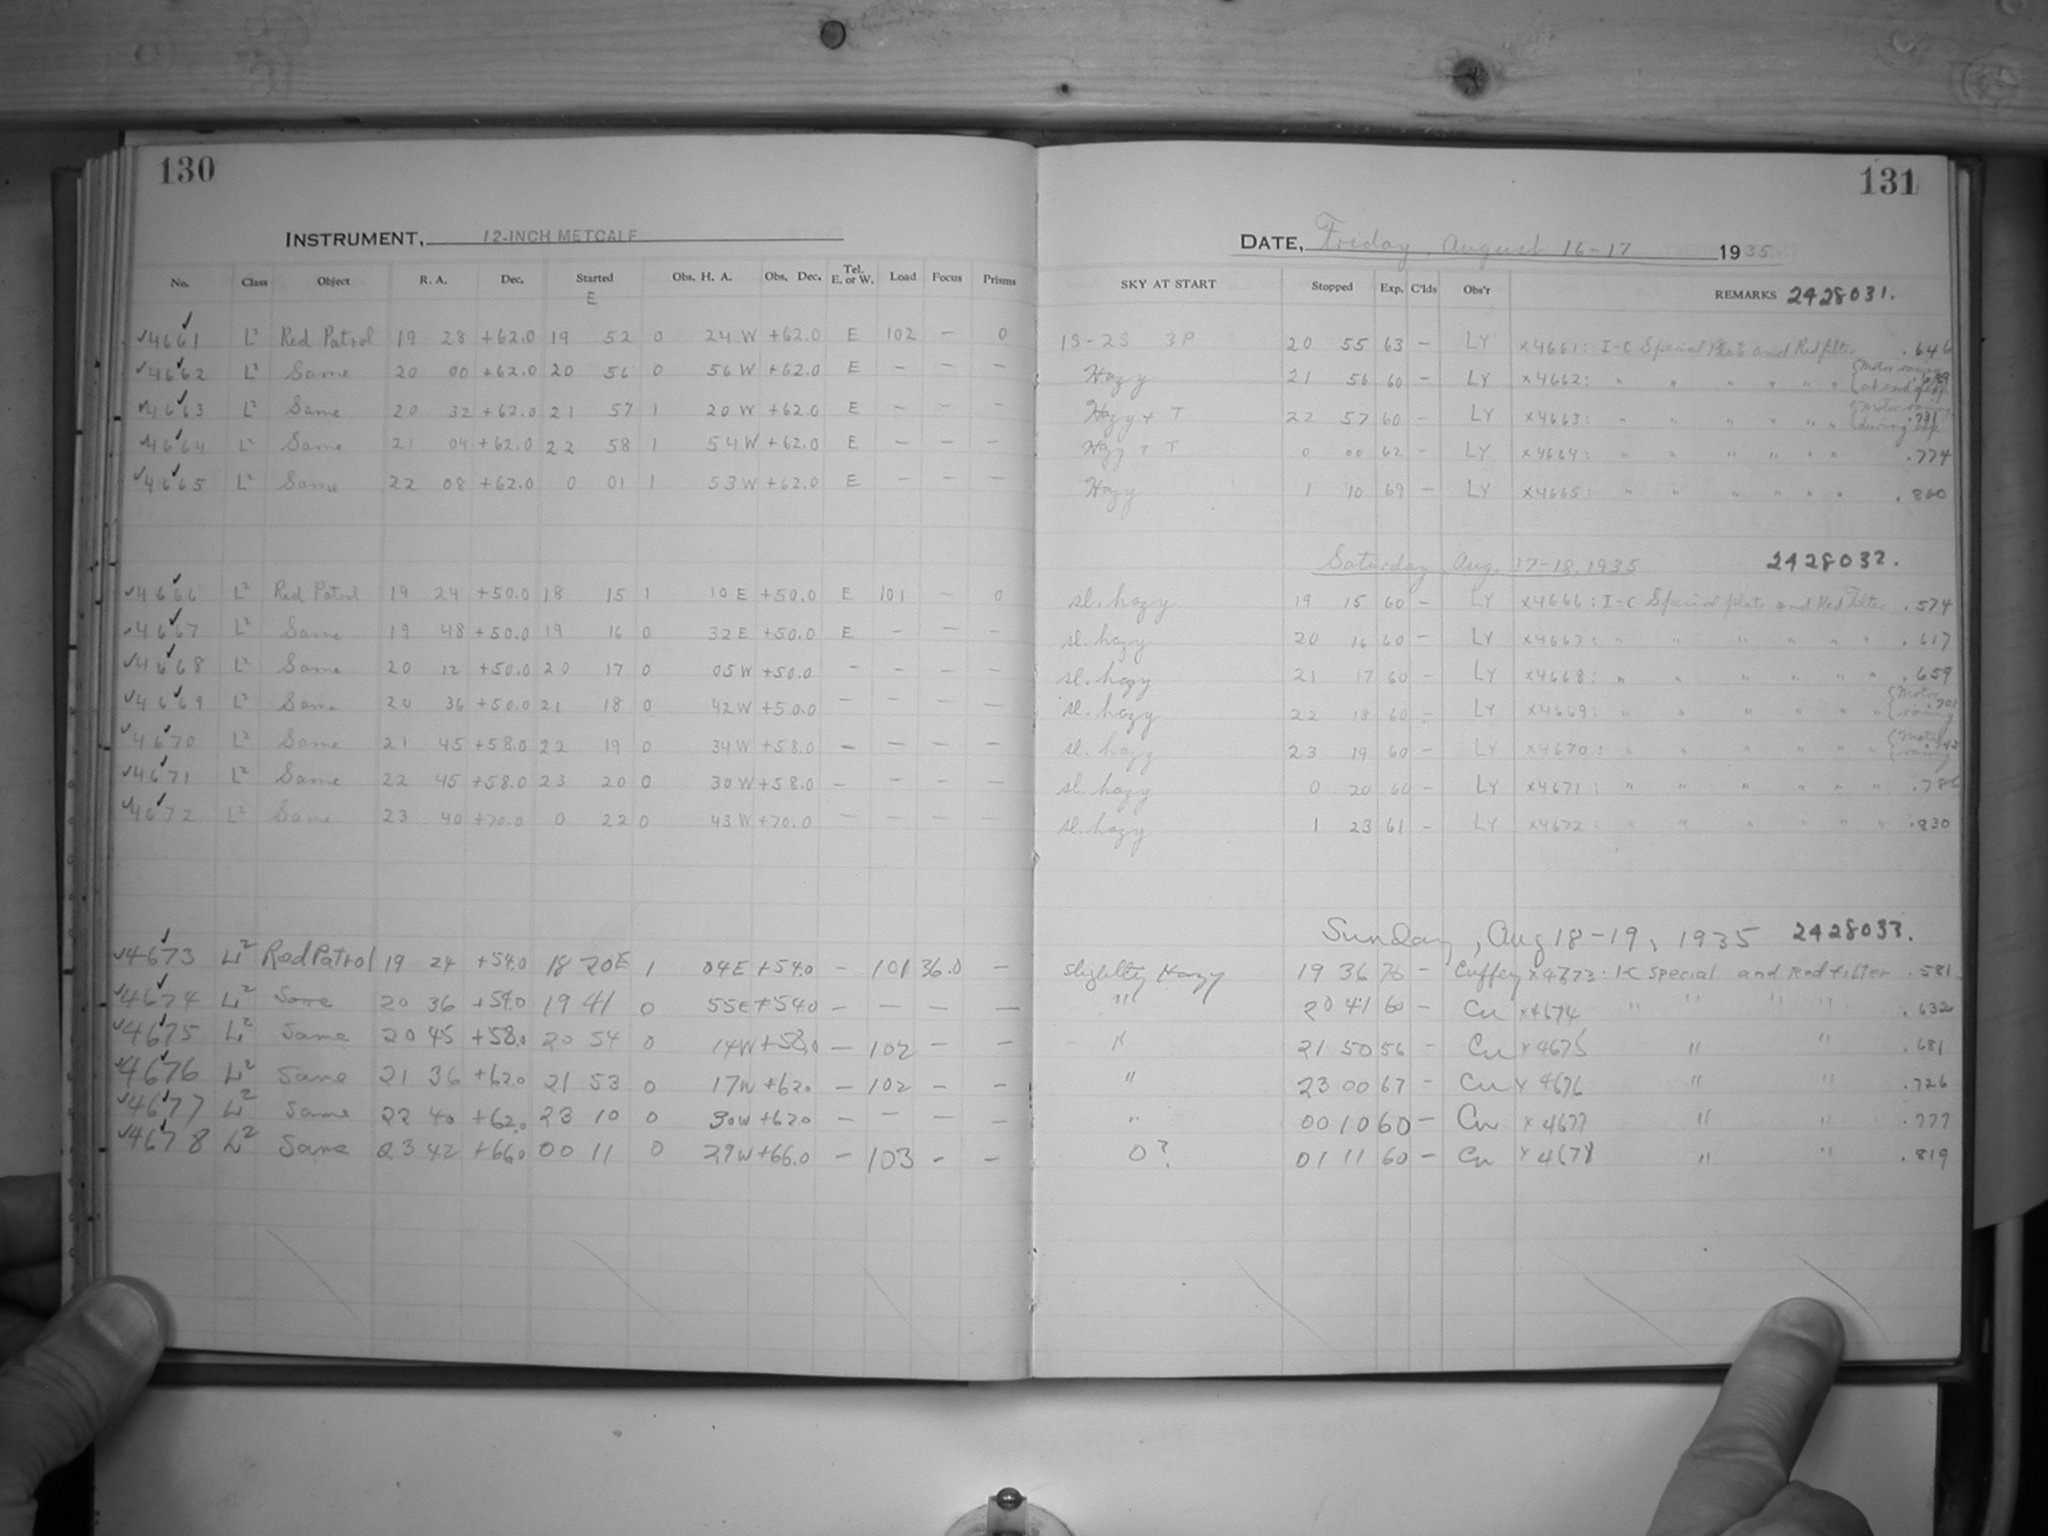 130
131
INSTRUMENT, 12-INCH METCALF
DATE, Friday, August 16-17 1935
No. Class Object R. A. Dec. Started Obs. H. A. Obs. Dec. Tel. E. or W. Load Focus Prisms SKY AT START Stopped Exp. C'lds Obs'r REMARKS 2428031.
E
✓4661 L² Red Patrol 19 28 +62.0 19 52 0 24 W +62.0 E 102 — 0 1S-2S 3P 20 55 63 — LY x4661: I-C Special Plate and Red filter .646
✓4662 L² Same 20 00 +62.0 20 56 0 56 W +62.0 E — — — Hazy 21 56 60 — LY x4662: " " " " " " {Motor at end of
✓4663 L² Same 20 32 +62.0 21 57 1 20 W +62.0 E — — — Hazy + T 22 57 60 — LY x4663: " " " " " " {Motor during .731
✓4664 L² Same 21 04 +62.0 22 58 1 54 W +62.0 E — — — Hazy + T 0 00 62 — LY x4664: " " " " " " .774
✓4665 L² Same 22 08 +62.0 0 01 1 53 W +62.0 E — — — Hazy 1 10 69 — LY x4665: " " " " " "
Saturday, Aug. 17-18, 1935 2428032.
✓4666 L² Red Patrol 19 24 +50.0 18 15 1 10 E +50.0 E 101 — 0 sl. hazy 19 15 60 — LY x4666: I-C Special plate and Red Filter .574
✓4667 L² Same 19 48 +50.0 19 16 0 32 E +50.0 E — — — sl. hazy 20 16 60 — LY x4667: " " " " " " .617
✓4668 L² Same 20 12 +50.0 20 17 0 05 W +50.0 — — — — sl. hazy 21 17 60 — LY x4668: " " " " " " .659
✓4669 L² Same 20 36 +50.0 21 18 0 42 W +50.0 — — — — sl. hazy 22 18 60 — LY x4669: " " " " " " {Motor .701
✓4670 L² Same 21 45 +58.0 22 19 0 34 W +58.0 — — — — sl. hazy 23 19 60 — LY x4670: " " " " " " {Motor
✓4671 L² Same 22 45 +58.0 23 20 0 30 W +58.0 — — — — sl. hazy 0 20 60 — LY x4671: " " " " " " .786
✓4672 L² Same 23 40 +70.0 0 22 0 43 W +70.0 — — — — sl. hazy 1 23 61 — LY x4672: " " " " " " .830
Sunday, Aug 18-19, 1935 2428033.
✓4673 L² Red Patrol 19 24 +54.0 18 20E 1 04E +54.0 — 101 36.0 — slightly Hazy 19 36 76 — Cuffey x4773: I-C Special and Red filter .581
✓4674 L² Same 20 36 +54.0 19 41 0 55E +54.0 — — — — " 20 41 60 — Cu x4674 " " " " .632
✓4675 L² Same 20 45 +58.0 20 54 0 14W +58.0 — 102 — — " 21 50 56 — Cu x4675 " " .681
✓4676 L² Same 21 36 +62.0 21 53 0 17W +62.0 — 102 — — " 23 00 67 — Cu x4676 " " .726
✓4677 L² Same 22 40 +62.0 23 10 0 30W +620 — — — — " 00 10 60 — Cu x4677 " " .777
✓4678 L² Same 23 42 +66.0 00 11 0 29W +66.0 — 103 - — 0? 01 11 60 — Cu x4678 " " .819